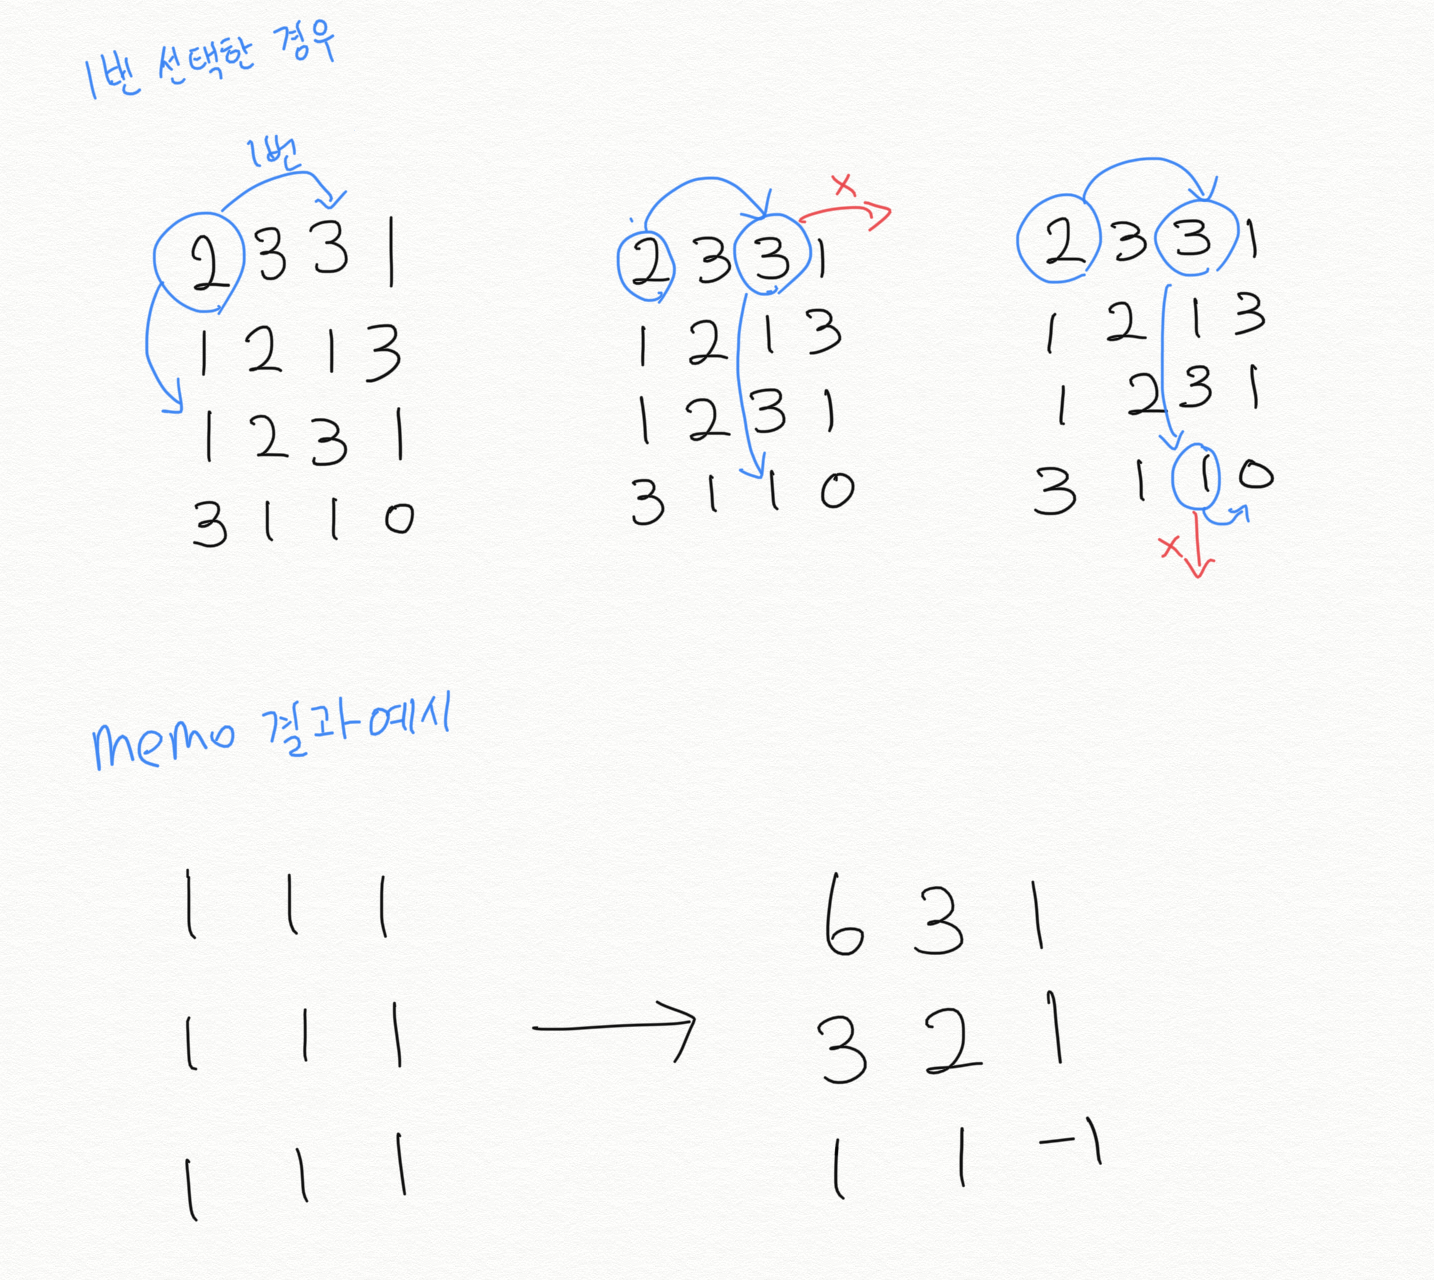 1번 선택한 경우
1번
2 3 3 1
1 2 1 3
1 2 3 1
3 1 1 0
x
2 3 3 1
1 2 1 3
1 2 3 1
3 1 1 0
2 3 3 1
1 2 1 3
1 2 3 1
3 1 1 0
x
memo 결과예시
1 1 1
1 1 1
1 1 1
6 3 1
3 2 1
1 1 -1